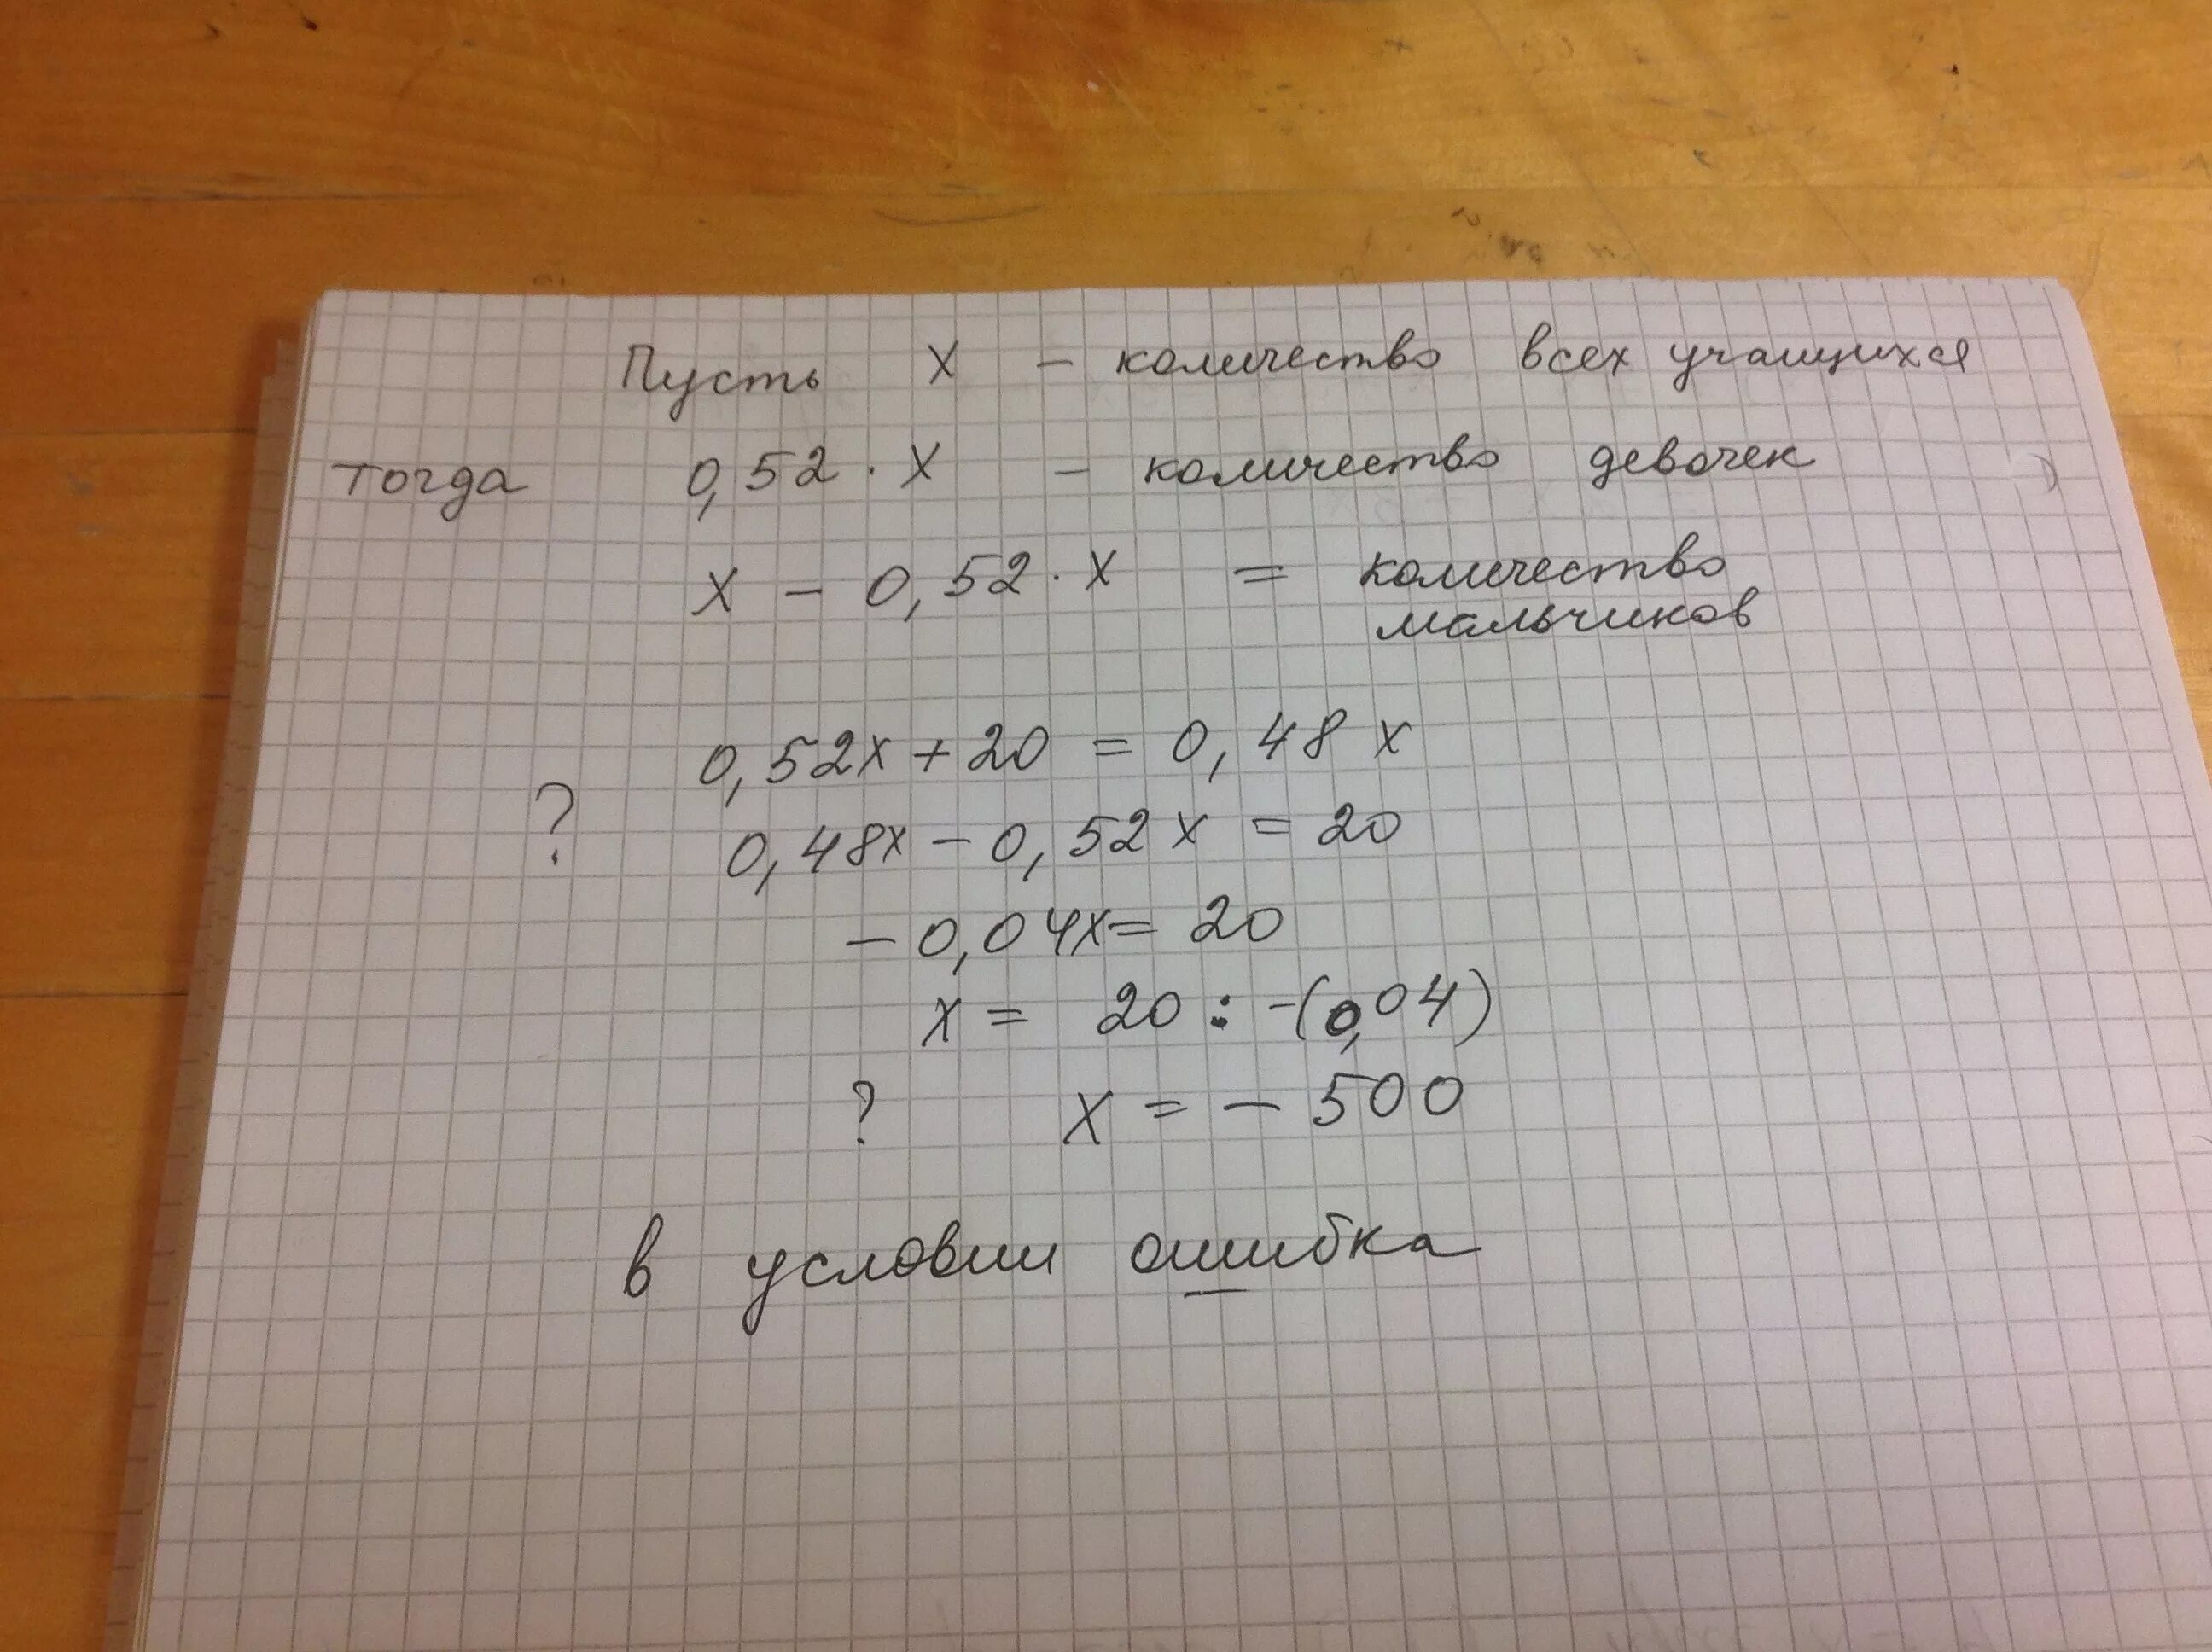 Пусть x – количество всех учащихся
тогда 0,52 · x – количество девочек
x – 0,52 · x = количество
мальчиков
0,52x + 20 = 0,48 x
? 0,48x – 0,52x = 20
– 0,04x = 20
x = 20 : -(0,04)
? x = – 500
в условии ошибка